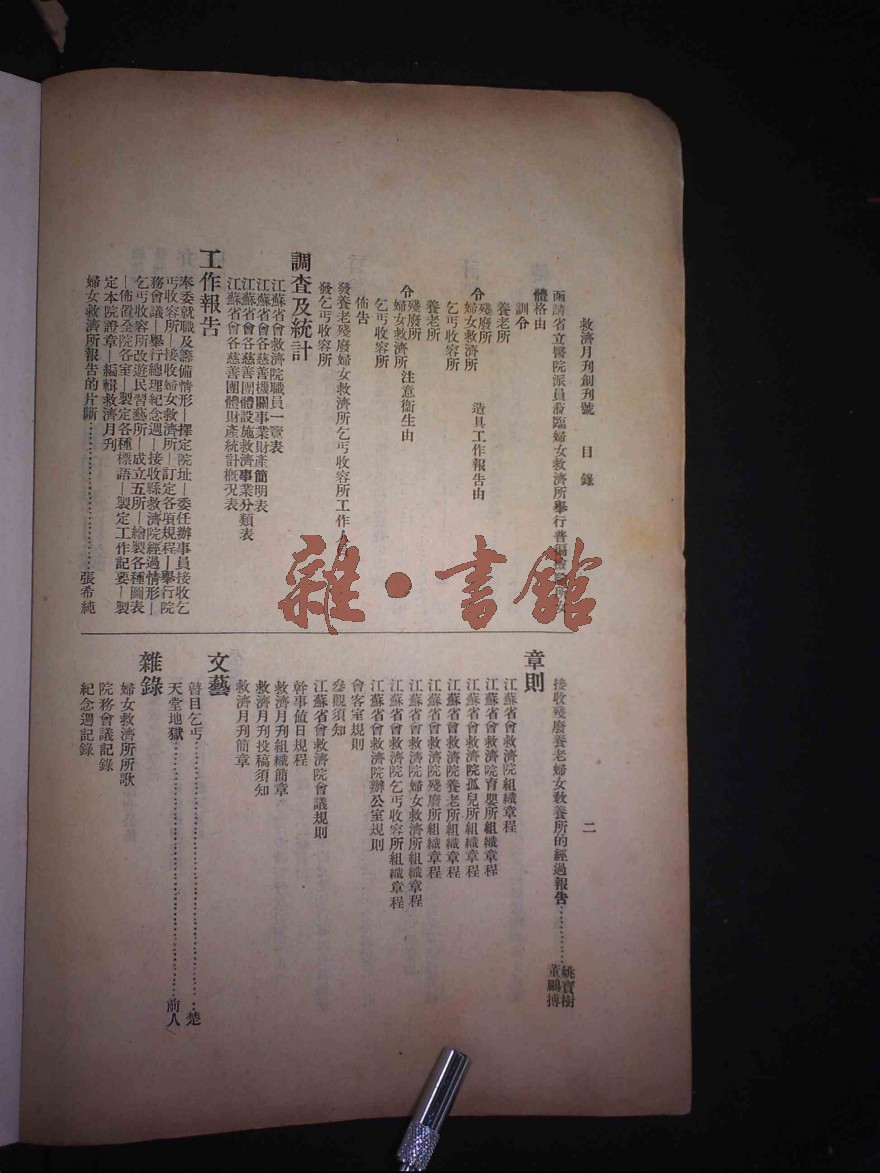 救濟月刊創刊號　目錄　二
函請省立醫院派員蒞臨婦女救濟所舉行普遍檢
體格由
訓令
養老所
殘廢所
令婦女救濟所　造具工作報告由
乞丐收容所
養老所
殘廢所
令婦女救濟所注意衞生由
乞丐收容所
佈告
發養老殘廢婦女救濟所乞丐收容所工作人
發乞丐收容所
調查及統計
江蘇省會救濟院職員一覽表
江蘇省會各慈善機關事業財產簡明表
江蘇省會各慈善團體設施救濟事業分類表
江蘇省會各慈善團體財產統計概況表
工作報告
奉委就職及籌備情形—擇定院址—委任辦事員接收乞
丐收容所—接收婦女救濟所—訂定各項規程—舉行院
務會議—舉行總理紀念週—接收縣救濟院經過情形—
乞丐收容所改遊民習藝所—成立五所—繪製各種圖表
—佈置全院各室—製定各種標語—製定工作記要—製
定本院證章—編輯救濟月刊
婦女救濟所報告的片斷…………………張希純
接收殘廢養老婦女敎養所的經過報告…………姚寶樹
董鵬摶
章則
江蘇省會救濟院組織章程
江蘇省會救濟院育嬰所組織章程
江蘇省會救濟院孤兒所組織章程
江蘇省會救濟院養老所組織章程
江蘇省會救濟院殘廢所組織章程
江蘇省會救濟院婦女救濟所組織章程
江蘇省會救濟院乞丐收容所組織章程
江蘇省會救濟院辦公室規則
會客室規則
參觀須知
江蘇省會救濟院會議規則
幹事值日規程
救濟月刊組織簡章
救濟月刊投稿須知
救濟月刊簡章
文藝
瞽目乞丐……………………………………楚
天堂地獄……………………………………前人
雜錄
婦女救濟所所歌
院務會議記錄
紀念週記錄
雜·書館